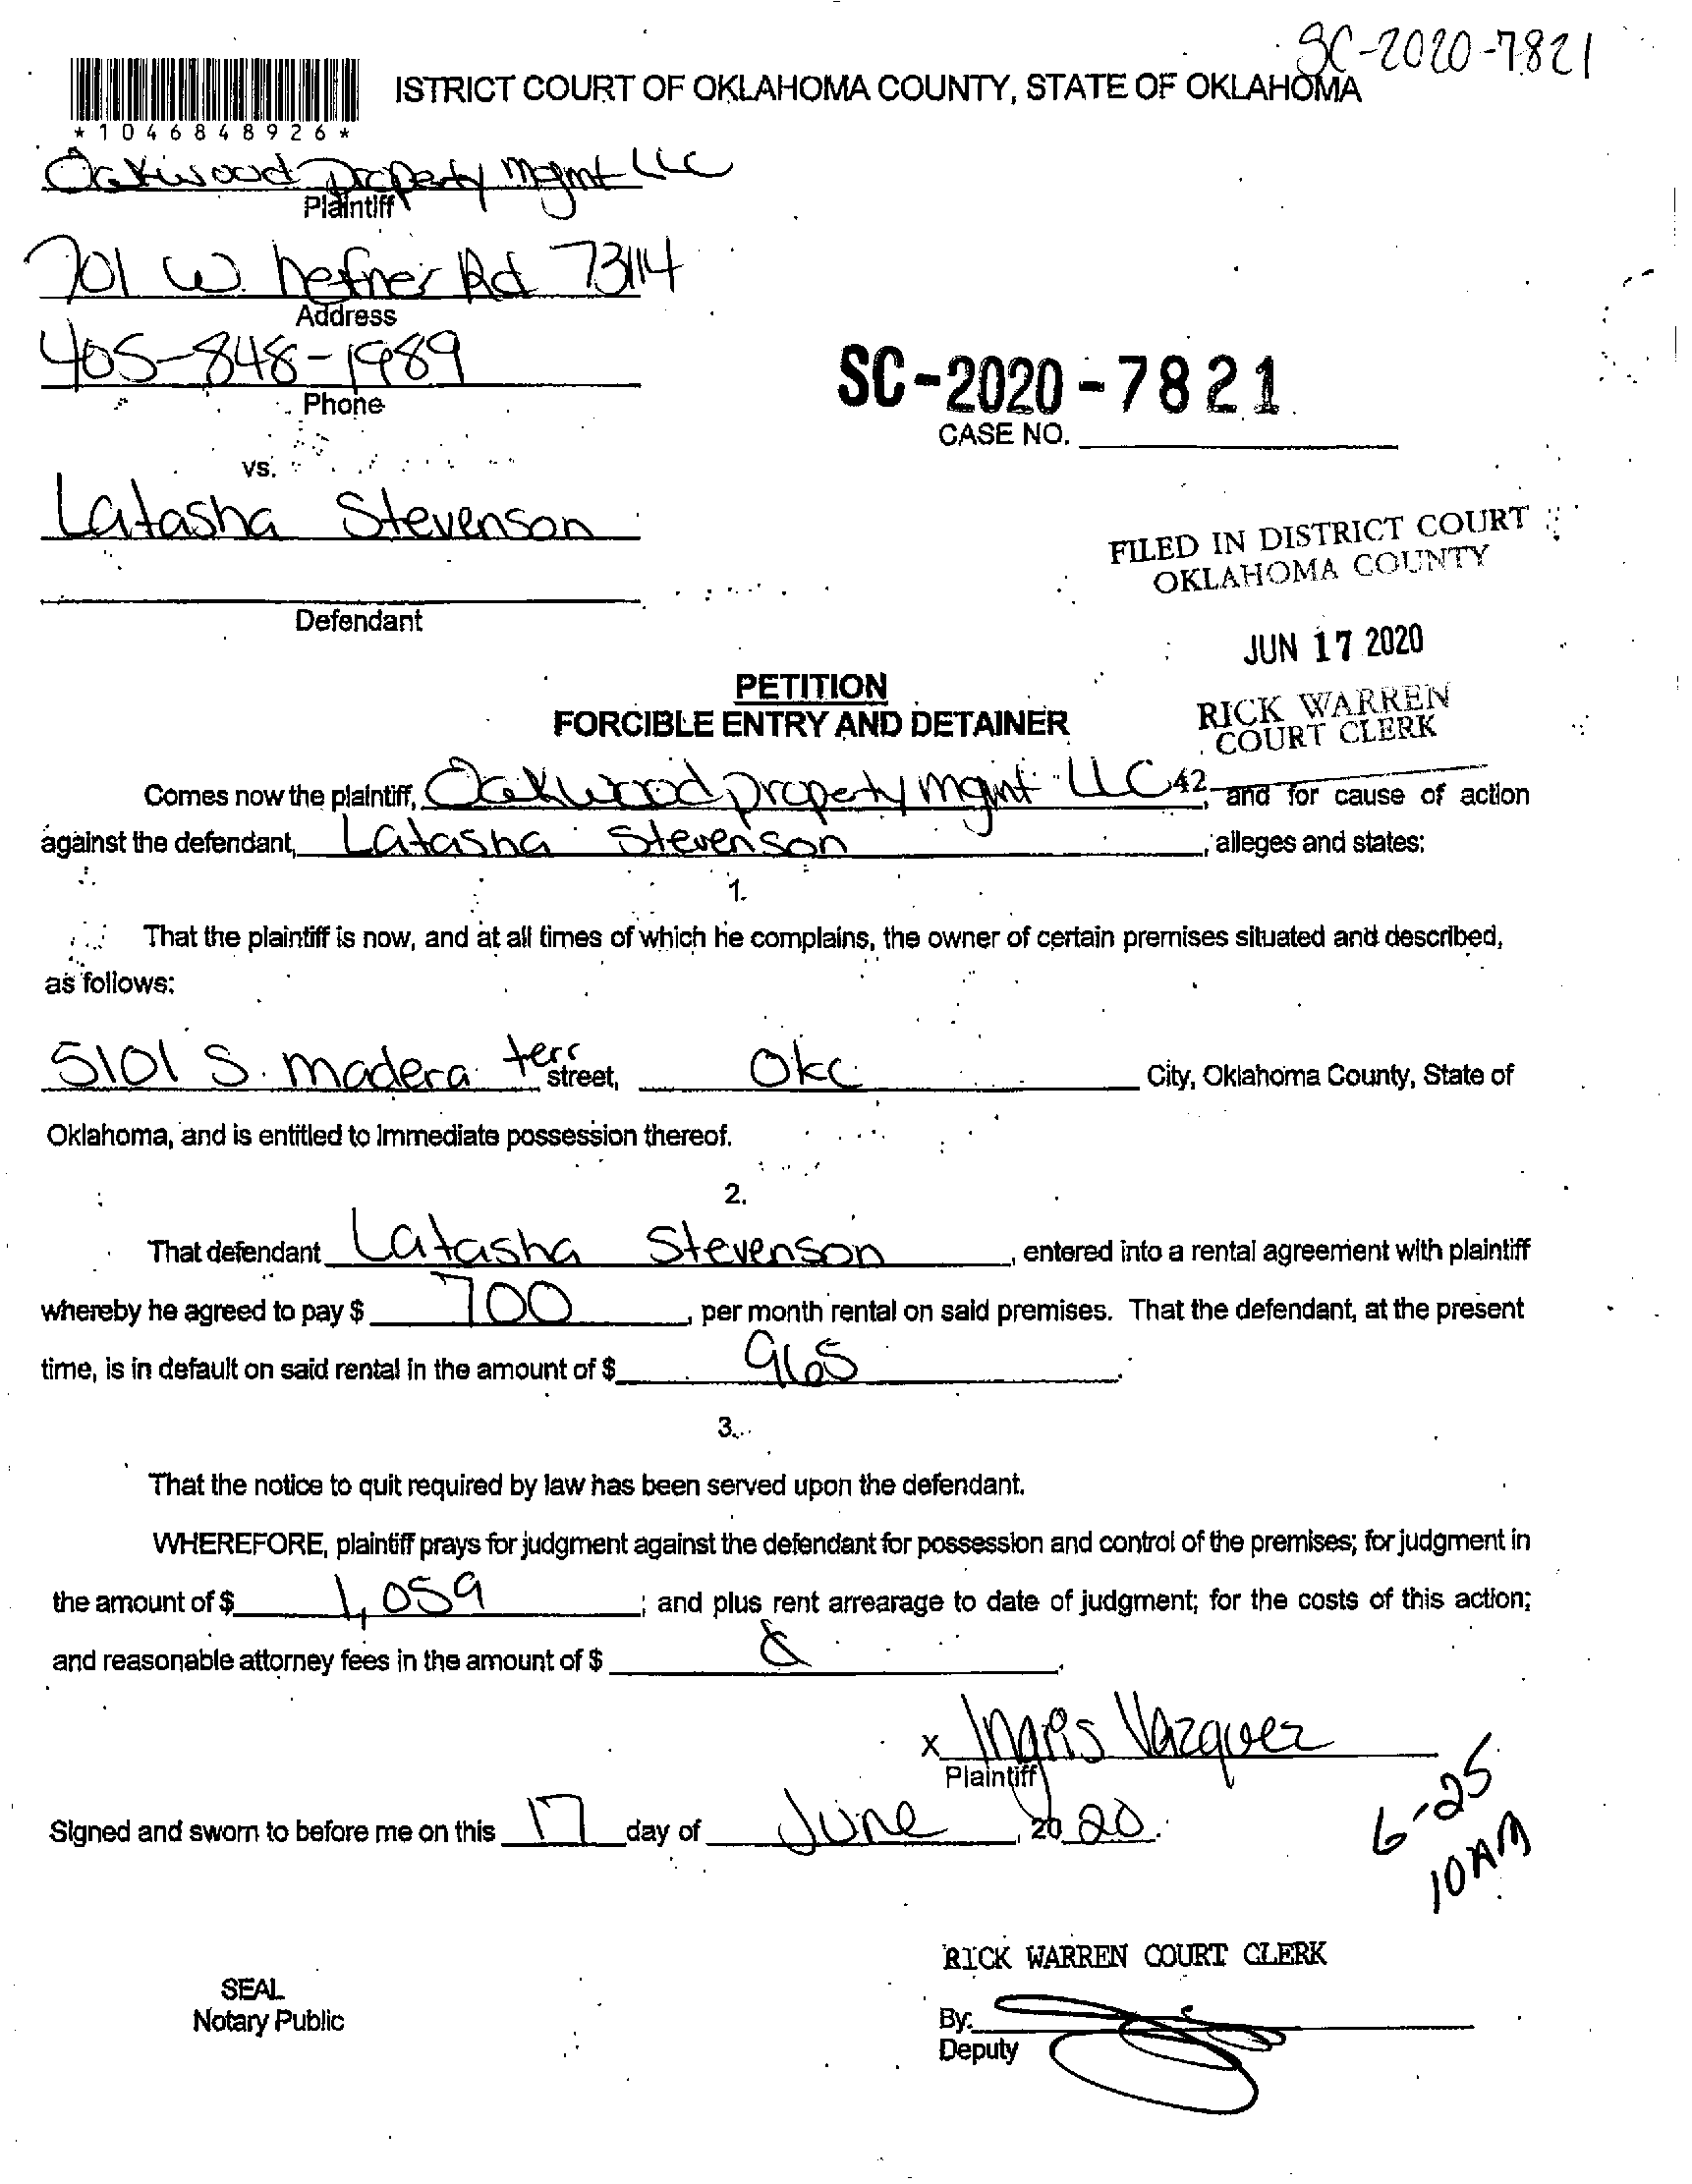 SC-2020-7821
ISTRICT COURT OF OKLAHOMA COUNTY, STATE OF OKLAHOMA
*1046848926*
Oakwood property mgmt LLC
Plaintiff
701 W. hefner Rd 73114
Address
405-848-1989
Phone
SC-2020-7821
CASE NO.
vs.
Latasha Stevenson
Defendant
FILED IN DISTRICT COURT
OKLAHOMA COUNTY
JUN 17 2020
RICK WARREN
COURT CLERK
42
PETITION
FORCIBLE ENTRY AND DETAINER
Comes now the plaintiff, Oakwood property mgmt LLC, and for cause of action
against the defendant, Latasha Stevenson, alleges and states:
1.
That the plaintiff is now, and at all times of which he complains, the owner of certain premises situated and described,
as follows:
5101 S. madera terr street, Okc City, Oklahoma County, State of
Oklahoma, and is entitled to immediate possession thereof.
2.
That defendant Latasha Stevenson, entered into a rental agreement with plaintiff
whereby he agreed to pay $ 700, per month rental on said premises. That the defendant, at the present
time, is in default on said rental in the amount of $ 965.
3.
That the notice to quit required by law has been served upon the defendant.
WHEREFORE, plaintiff prays for judgment against the defendant for possession and control of the premises; for judgment in
the amount of $ 1,059; and plus rent arrearage to date of judgment; for the costs of this action;
and reasonable attorney fees in the amount of $
x Ingris Vazquez
Plaintiff
Signed and sworn to before me on this 17 day of June, 2020.
6-25
10AM
RICK WARREN COURT CLERK
SEAL
Notary Public
By:
Deputy